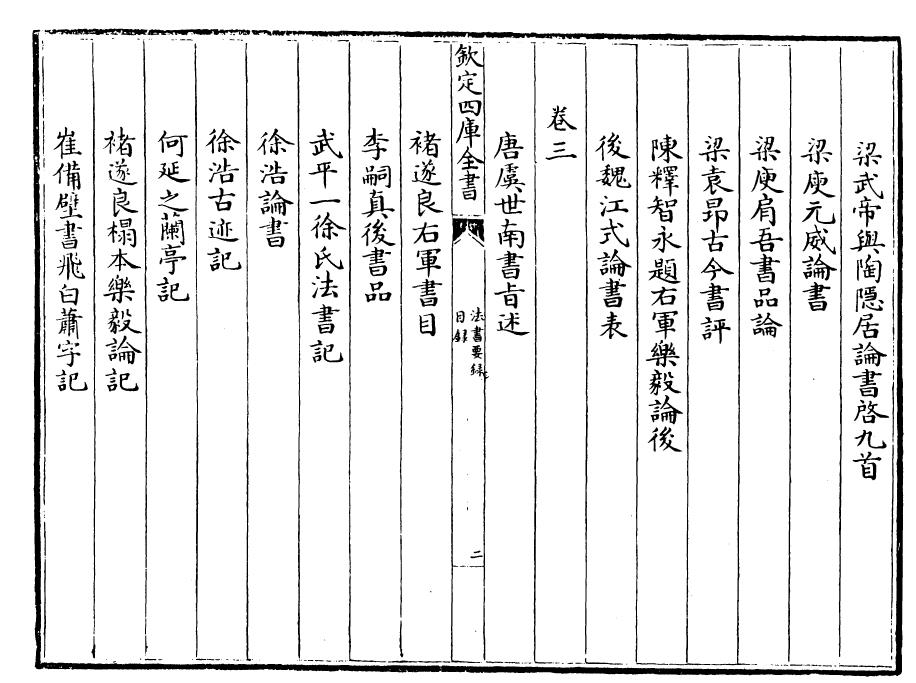 梁武帝與陶隱居論書啓九首
梁庾元威論書
梁庾肩吾書品論
梁袁昂古今書評
陳釋智永題右軍樂毅論後
後魏江式論書表
卷三
唐虞世南書旨述
欽定四庫全書
法書要錄
目錄
二
褚遂良右軍書目
李嗣真後書品
武平一徐氏法書記
徐浩論書
徐浩古迹記
何延之蘭亭記
褚遂良榻本樂毅論記
崔備壁書飛白蕭字記